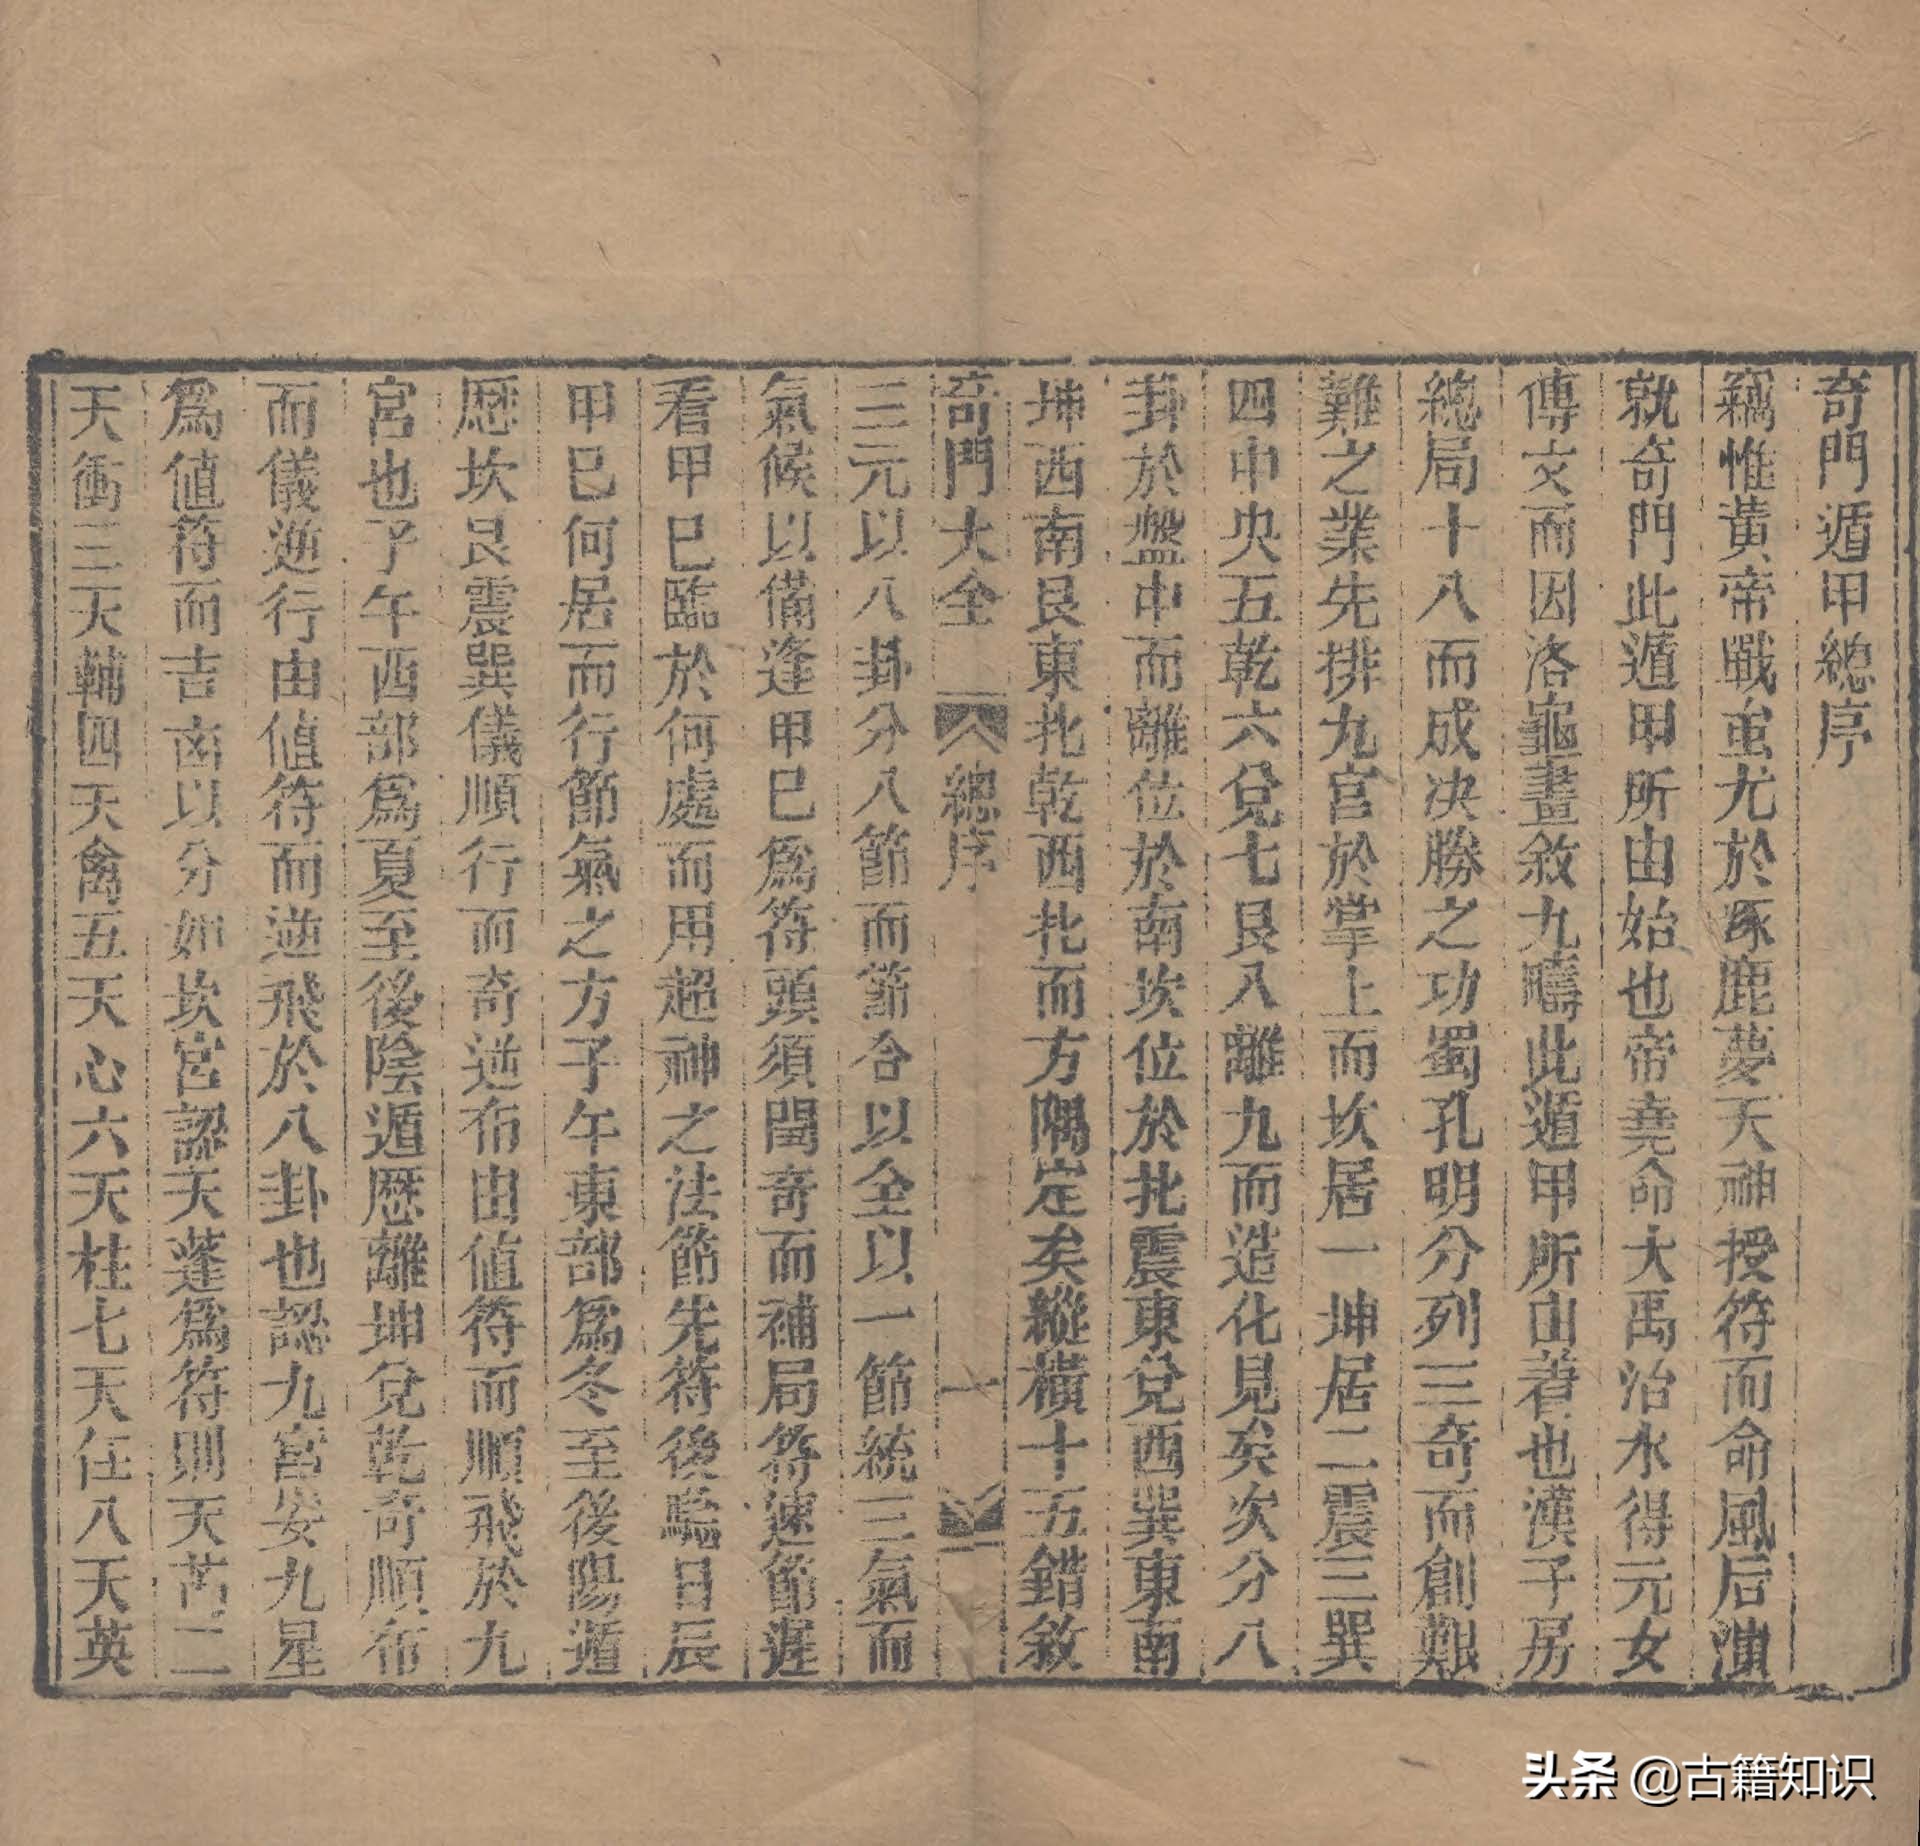 奇門遁甲總序
竊惟黃帝戰蚩尤於涿鹿夢天神授符而命風后演
就奇門此遁甲所由始也帝堯命大禹治水得元女
傳文而因洛龜畫敘九疇此遁甲所由著也漢子房
總局十八而成决勝之功蜀孔明分列三奇而創艱
難之業先排九宮於掌上而坎居一坤居二震三巽
四中央五乾六兌七艮八離九而造化見矣次分八
卦於盤中而離位於南坎位於北震東兌西巽東南
坤西南艮東北乾西北而方隅定矣縱橫十五錯敘
奇門大全 總序 一
三元以八卦分八節而節合以全以一節統三氣而
氣候以備逢甲巳爲符頭須閏奇而補局符速節遲
看甲巳臨於何處而用超神之法節先符後驗日辰
甲巳何居而行節氣之方子午東部爲冬至後陽遁
歷坎艮震巽儀順行而奇逆布由值符而順飛於九
宮也子午西部爲夏至後陰遁歷離坤兌乾奇順布
而儀逆行由値符而逆飛於八卦也認九宮安九星
爲値符而吉凶以分如坎宮認天蓬爲符則天芮二
天衝三天輔四天禽五天心六天柱七天任八天英
头条 @古籍知识